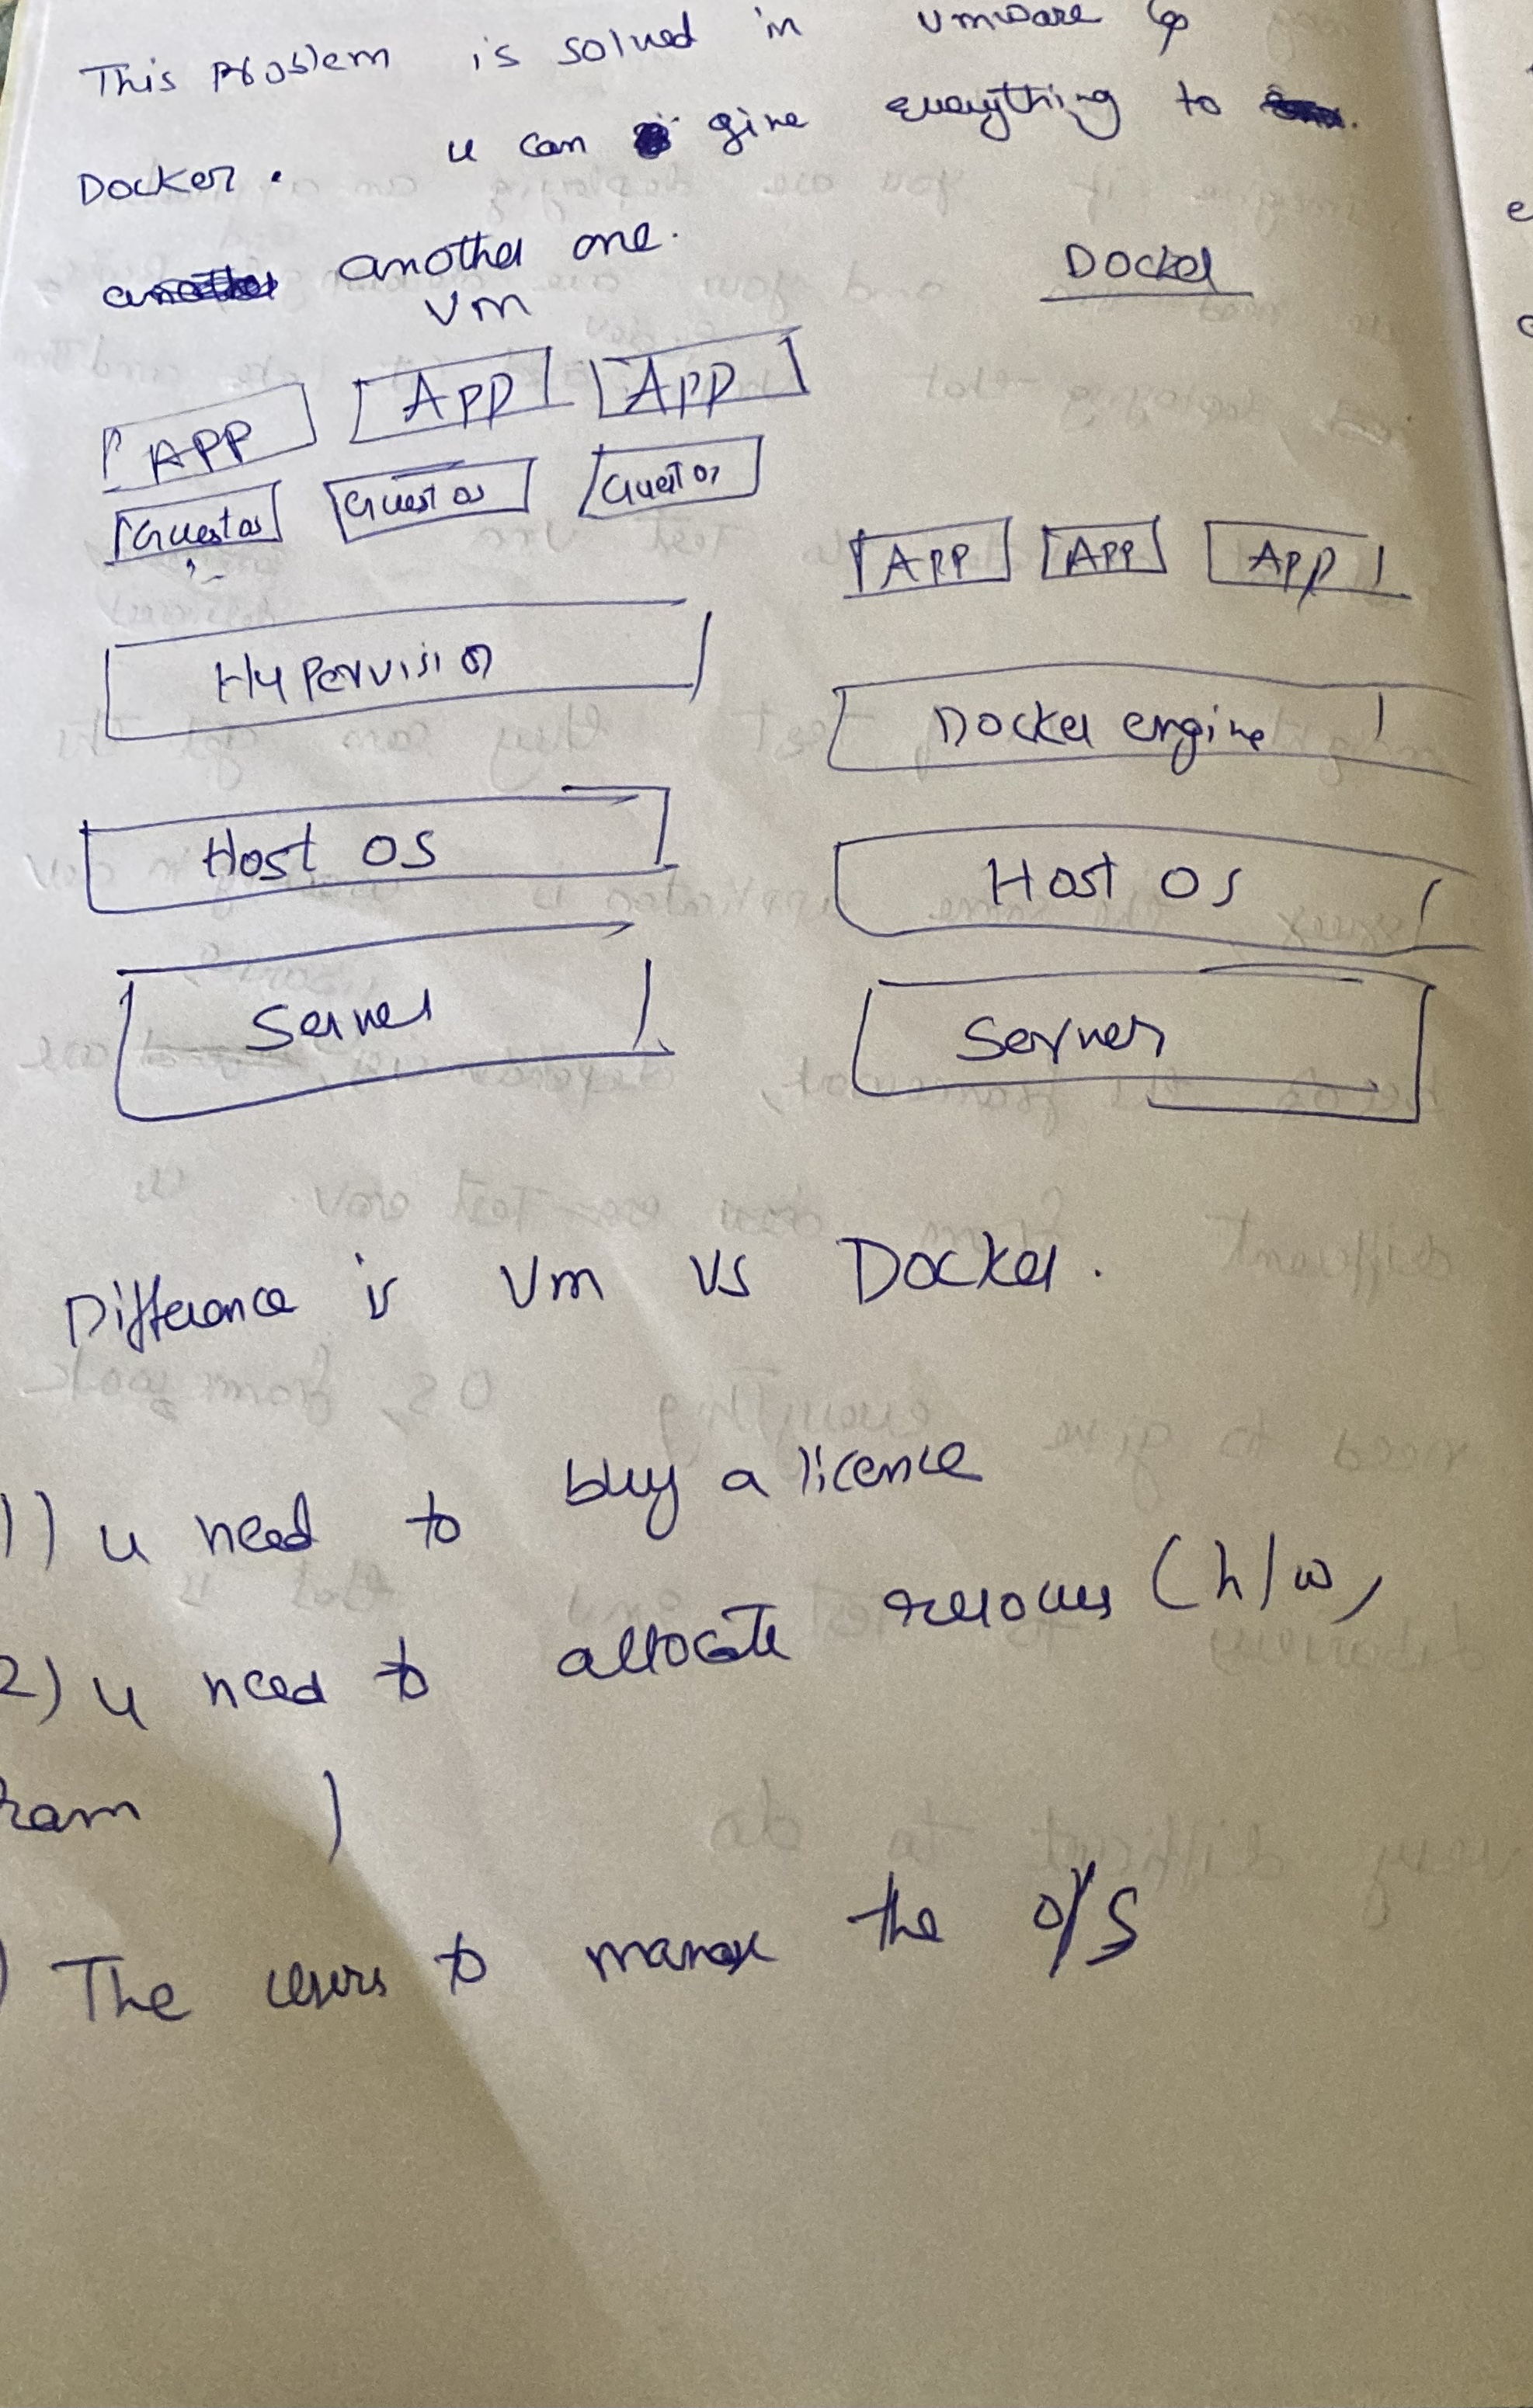 This problem is solved in vmware &
Docker. u can give everything to
another one.
Vm
Docker
APP APP APP
Guest os Guest os Guest os
APP APP APP
Hypervision
Docker engine
Host OS
Host OS
Server
Server
Difference is Vm vs Docker.
1) u need to buy a licence
2) u need to allocate resources (h/w,
ram )
) The users to manage the o/s